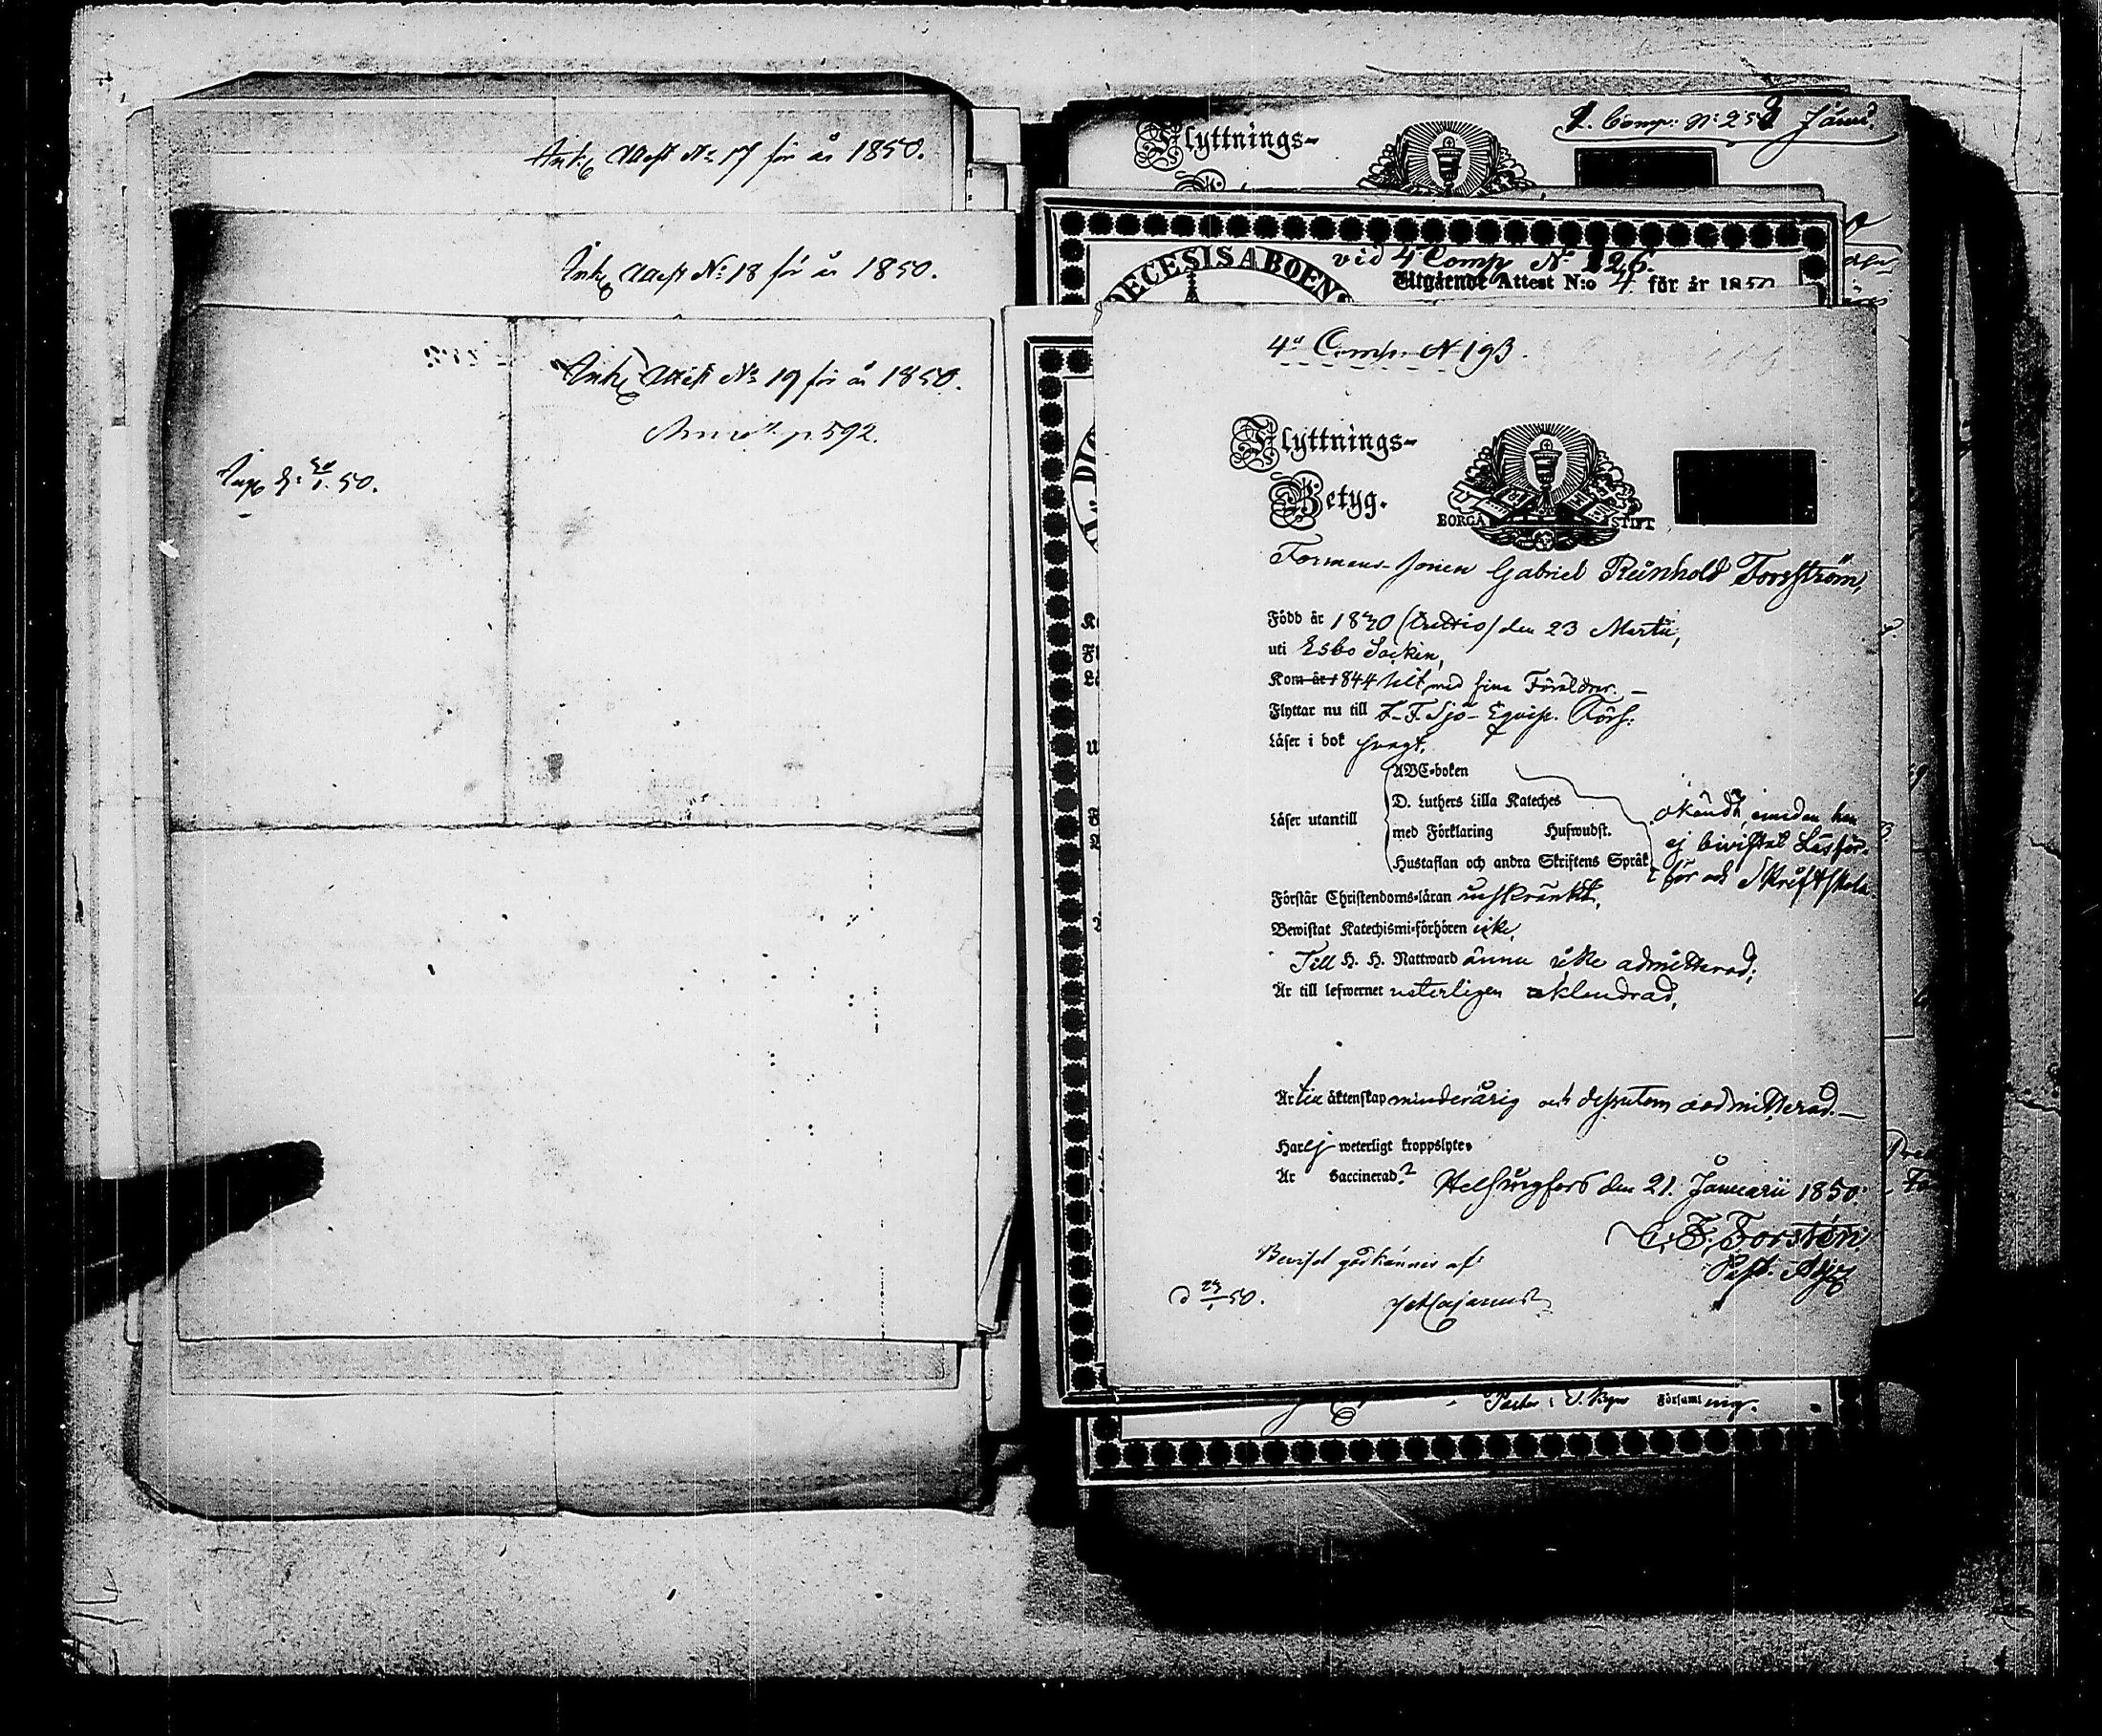 Ank. Attest No 17 för år 1850.
Ank. Attest No: 18 för år 1850.
Ank. Attest No 19 för år 1850.
p. 592.
50.
Flyttnings-
2. Comp: No 25
vid 4 Comp No 126.
Utgående Attest N:o 4 för år 1850
DIOECESIS ABOENS
4de Comp. N 193.
Flyttnings-
Betyg.
BORGÅ STIFT
Formans-sonen Gabriel Reinhold Forsström,
Född år 1830 (trettio) den 23 Martii,
uti Esbo Socken,
Kom år 1844 hit med sina Föräldrar. —
Flyttar nu till 1. F. Sjö-Equip. Förs:
Läser i bok svagt,
ABC-boken
D. Luthers Lilla Kateches
Läser utantill
med Förklaring Hufwudst.
Hustaflan och andra Skriftens Språk
okändt, emedan han
ej bevistat Läsför-
hör och Skriftskola.
Förstår Christendoms-läran inskränkt,
Bewistat Katechismi-förhören icke,
Till H. H. Nattward ännu icke admitterad;
Är till lefwernet veterligen oklandrad,
Är till äktenskap minderårig och dessutom oadmitterad. —
Har ej weterligt kroppslyte.
Är Vaccinerad?
Helsingfors den 21. Januarii 1850.
C. F. Forstén
Past. Adj.
Beviset godkännes af:
d 23/1 50.
Församling.